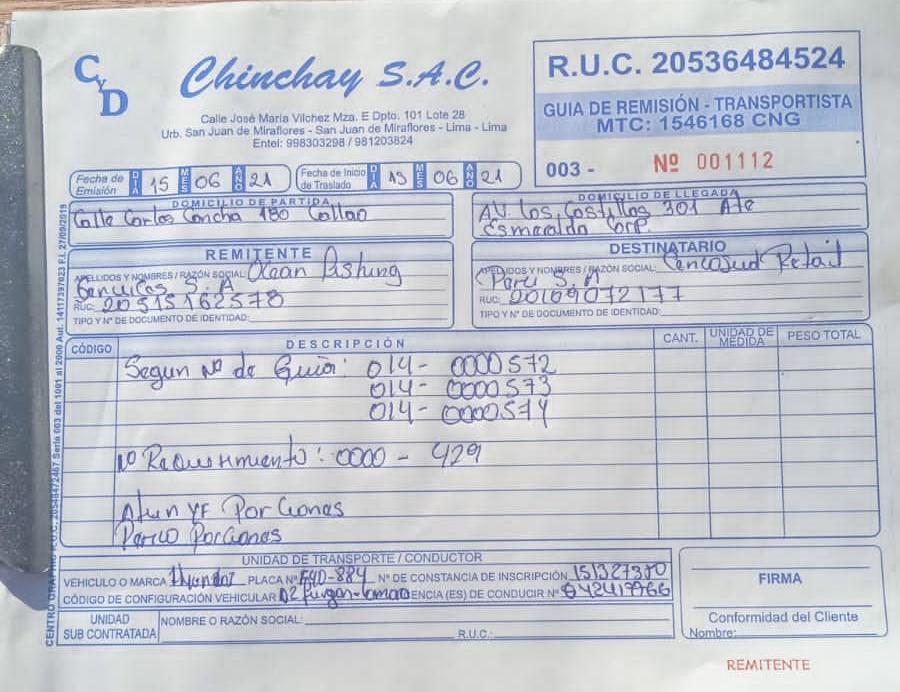 C y D
Chinchay S.A.C.
Calle José María Vilchez Mza. E Dpto. 101 Lote 28
Urb. San Juan de Miraflores - San Juan de Miraflores - Lima - Lima
Entel: 998303298 / 981203824
R.U.C. 20536484524
GUIA DE REMISIÓN - TRANSPORTISTA
MTC: 1546168 CNG
003 - Nº 001112
Fecha de Emisión DIA 15 MES 06 AÑO 21
Fecha de Inicio de Traslado DIA 15 MES 06 AÑO 21
DOMICILIO DE PARTIDA
Calle Carlos Concha 180 Callao
DOMICILIO DE LLEGADA
AV. Los Castillos 301 Ate
Esmeralda Corp.
REMITENTE
APELLIDOS Y NOMBRES / RAZÓN SOCIAL: Ocean Fishing
Servicios S.A
RUC: 20515162578
TIPO Y Nº DE DOCUMENTO DE IDENTIDAD:
DESTINATARIO
APELLIDOS Y NOMBRES / RAZÓN SOCIAL: Cencosud Retail
Peru S.A
RUC: 20109072177
TIPO Y Nº DE DOCUMENTO DE IDENTIDAD:
CÓDIGO DESCRIPCIÓN CANT. UNIDAD DE MEDIDA PESO TOTAL
Segun Nº de Guia: 014- 0000572
014- 0000573
014- 0000574
Nº Requerimiento: 0000 - 429
Atun YF Porciones
Perico Porciones
UNIDAD DE TRANSPORTE / CONDUCTOR
VEHICULO O MARCA Hyundai PLACA Nº -884 Nº DE CONSTANCIA DE INSCRIPCIÓN 151327370
CÓDIGO DE CONFIGURACIÓN VEHICULAR ENCIA (ES) DE CONDUCIR Nº
UNIDAD SUB CONTRATADA
NOMBRE O RAZÓN SOCIAL:
R.U.C.:
FIRMA
Conformidad del Cliente
Nombre:
REMITENTE